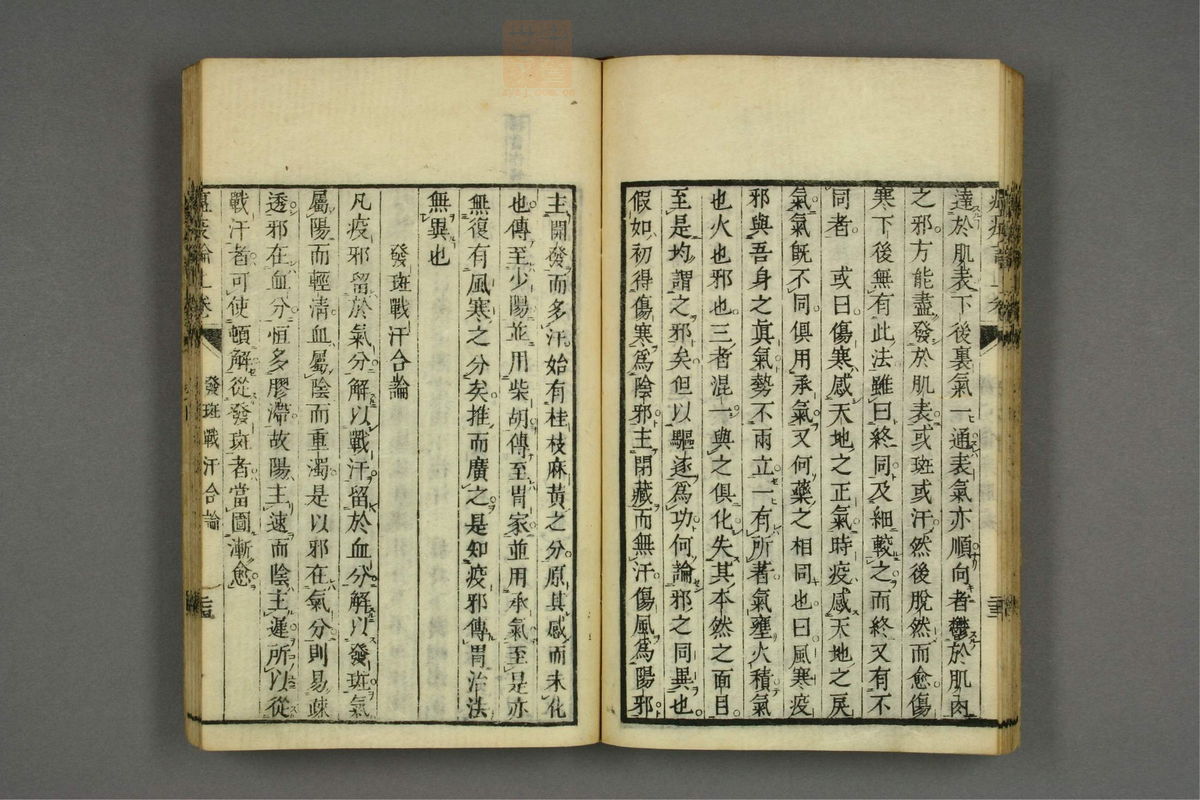 達於肌表下後裏氣一通表氣亦順向者鬱於肌肉
之邪方能盡發於肌表或斑或汗然後脫然而愈傷
寒下後無有此法雖曰終同及細較之而終又有不
同者　或曰傷寒感天地之正氣時疫感天地之戾
氣氣既不同俱用承氣又何藥之相同也曰風寒疫
邪與吾身之眞氣勢不兩立一有所著氣壅火積氣
也火也邪也三者混一與之俱化失其本然之面目
至是均謂之邪矣但以驅逐爲功何論邪之同異也
假如初得傷寒爲陰邪主閉藏而無汗傷風爲陽邪
主開發而多汗始有桂枝麻黃之分原其感而未化
也傳至少陽並用柴胡傳至胃家並用承氣至是亦
無復有風寒之分矣推而廣之是知疫邪傳胃治法
無異也
發斑戰汗合論
凡疫邪留於氣分解以戰汗留於血分解以發斑氣
屬陽而輕清血屬陰而重濁是以邪在氣分則易疎
透邪在血分恒多膠滯故陽主速而陰主遲所以從
戰汗者可使頓解從發斑者當圖漸愈
溫疫論上卷
發斑戰汗合論